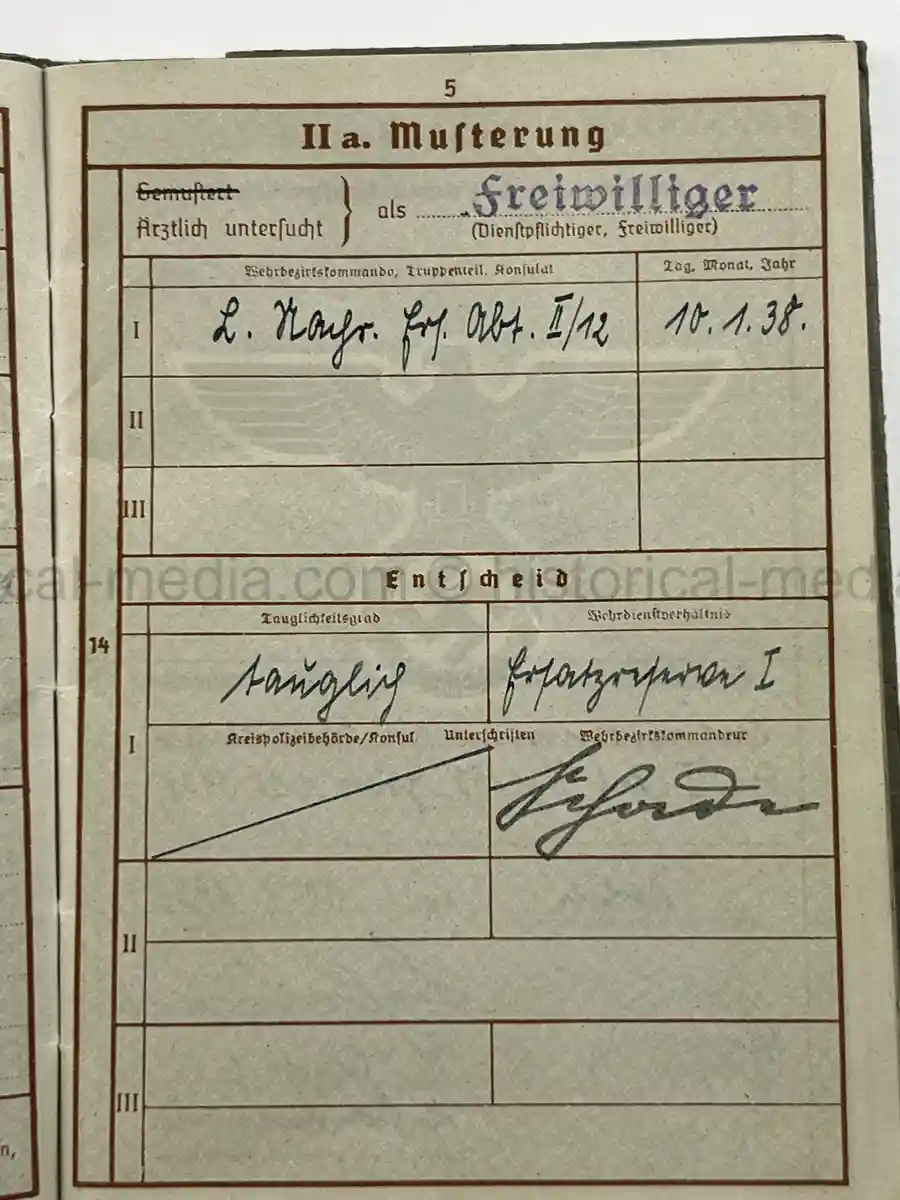 5
IIa. Musterung
Gemustert
Ärztlich untersucht
als Freiwilliger
(Dienstpflichtiger, Freiwilliger)
Wehrbezirkskommando, Truppenteil, Konsulat
Tag, Monat, Jahr
I
L. Nachr. Ers. Abt. II/12
10. 1. 38.
II
III
historical-media.com © historical-media
Entscheid
14
Tauglichkeitsgrad
Wehrdienstverhältnis
tauglich
Ersatzreserve I
I
Kreispolizeibehörde/Konsul
Unterschriften
Wehrbezirkskommandeur
Schade
II
III
n,